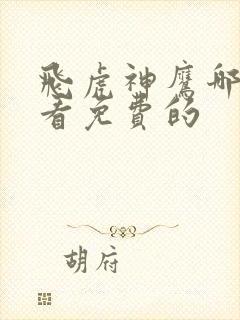 飛虎神鷹哪
看免費的
胡府